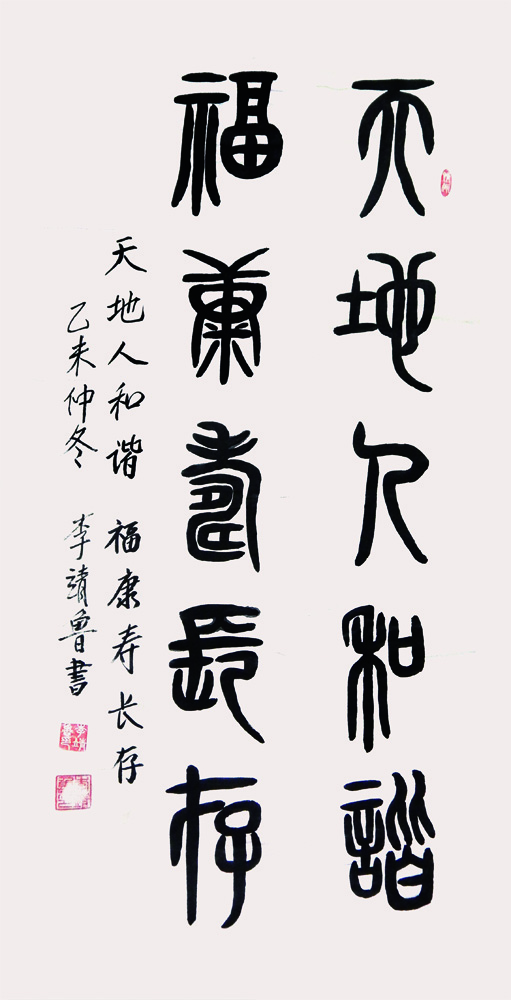 天地人和諧
福康壽長存
天地人和谐 福康寿长存
乙未仲冬 李靖鲁書